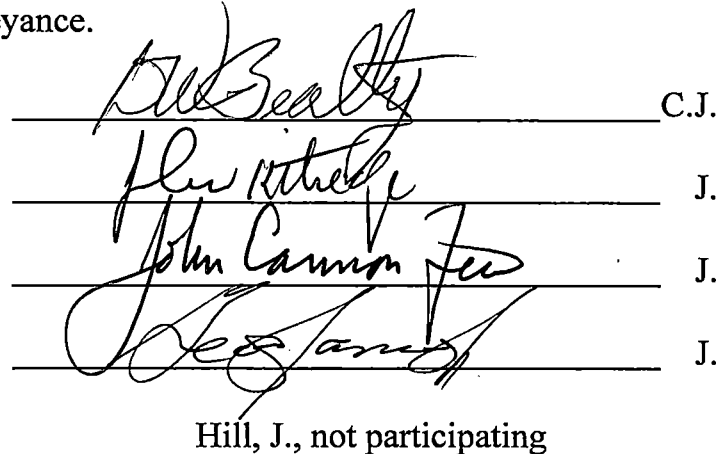 eyance.
DWBeatty C.J.
John Kittredge J.
John Cannon Few J.
J.
Hill, J., not participating